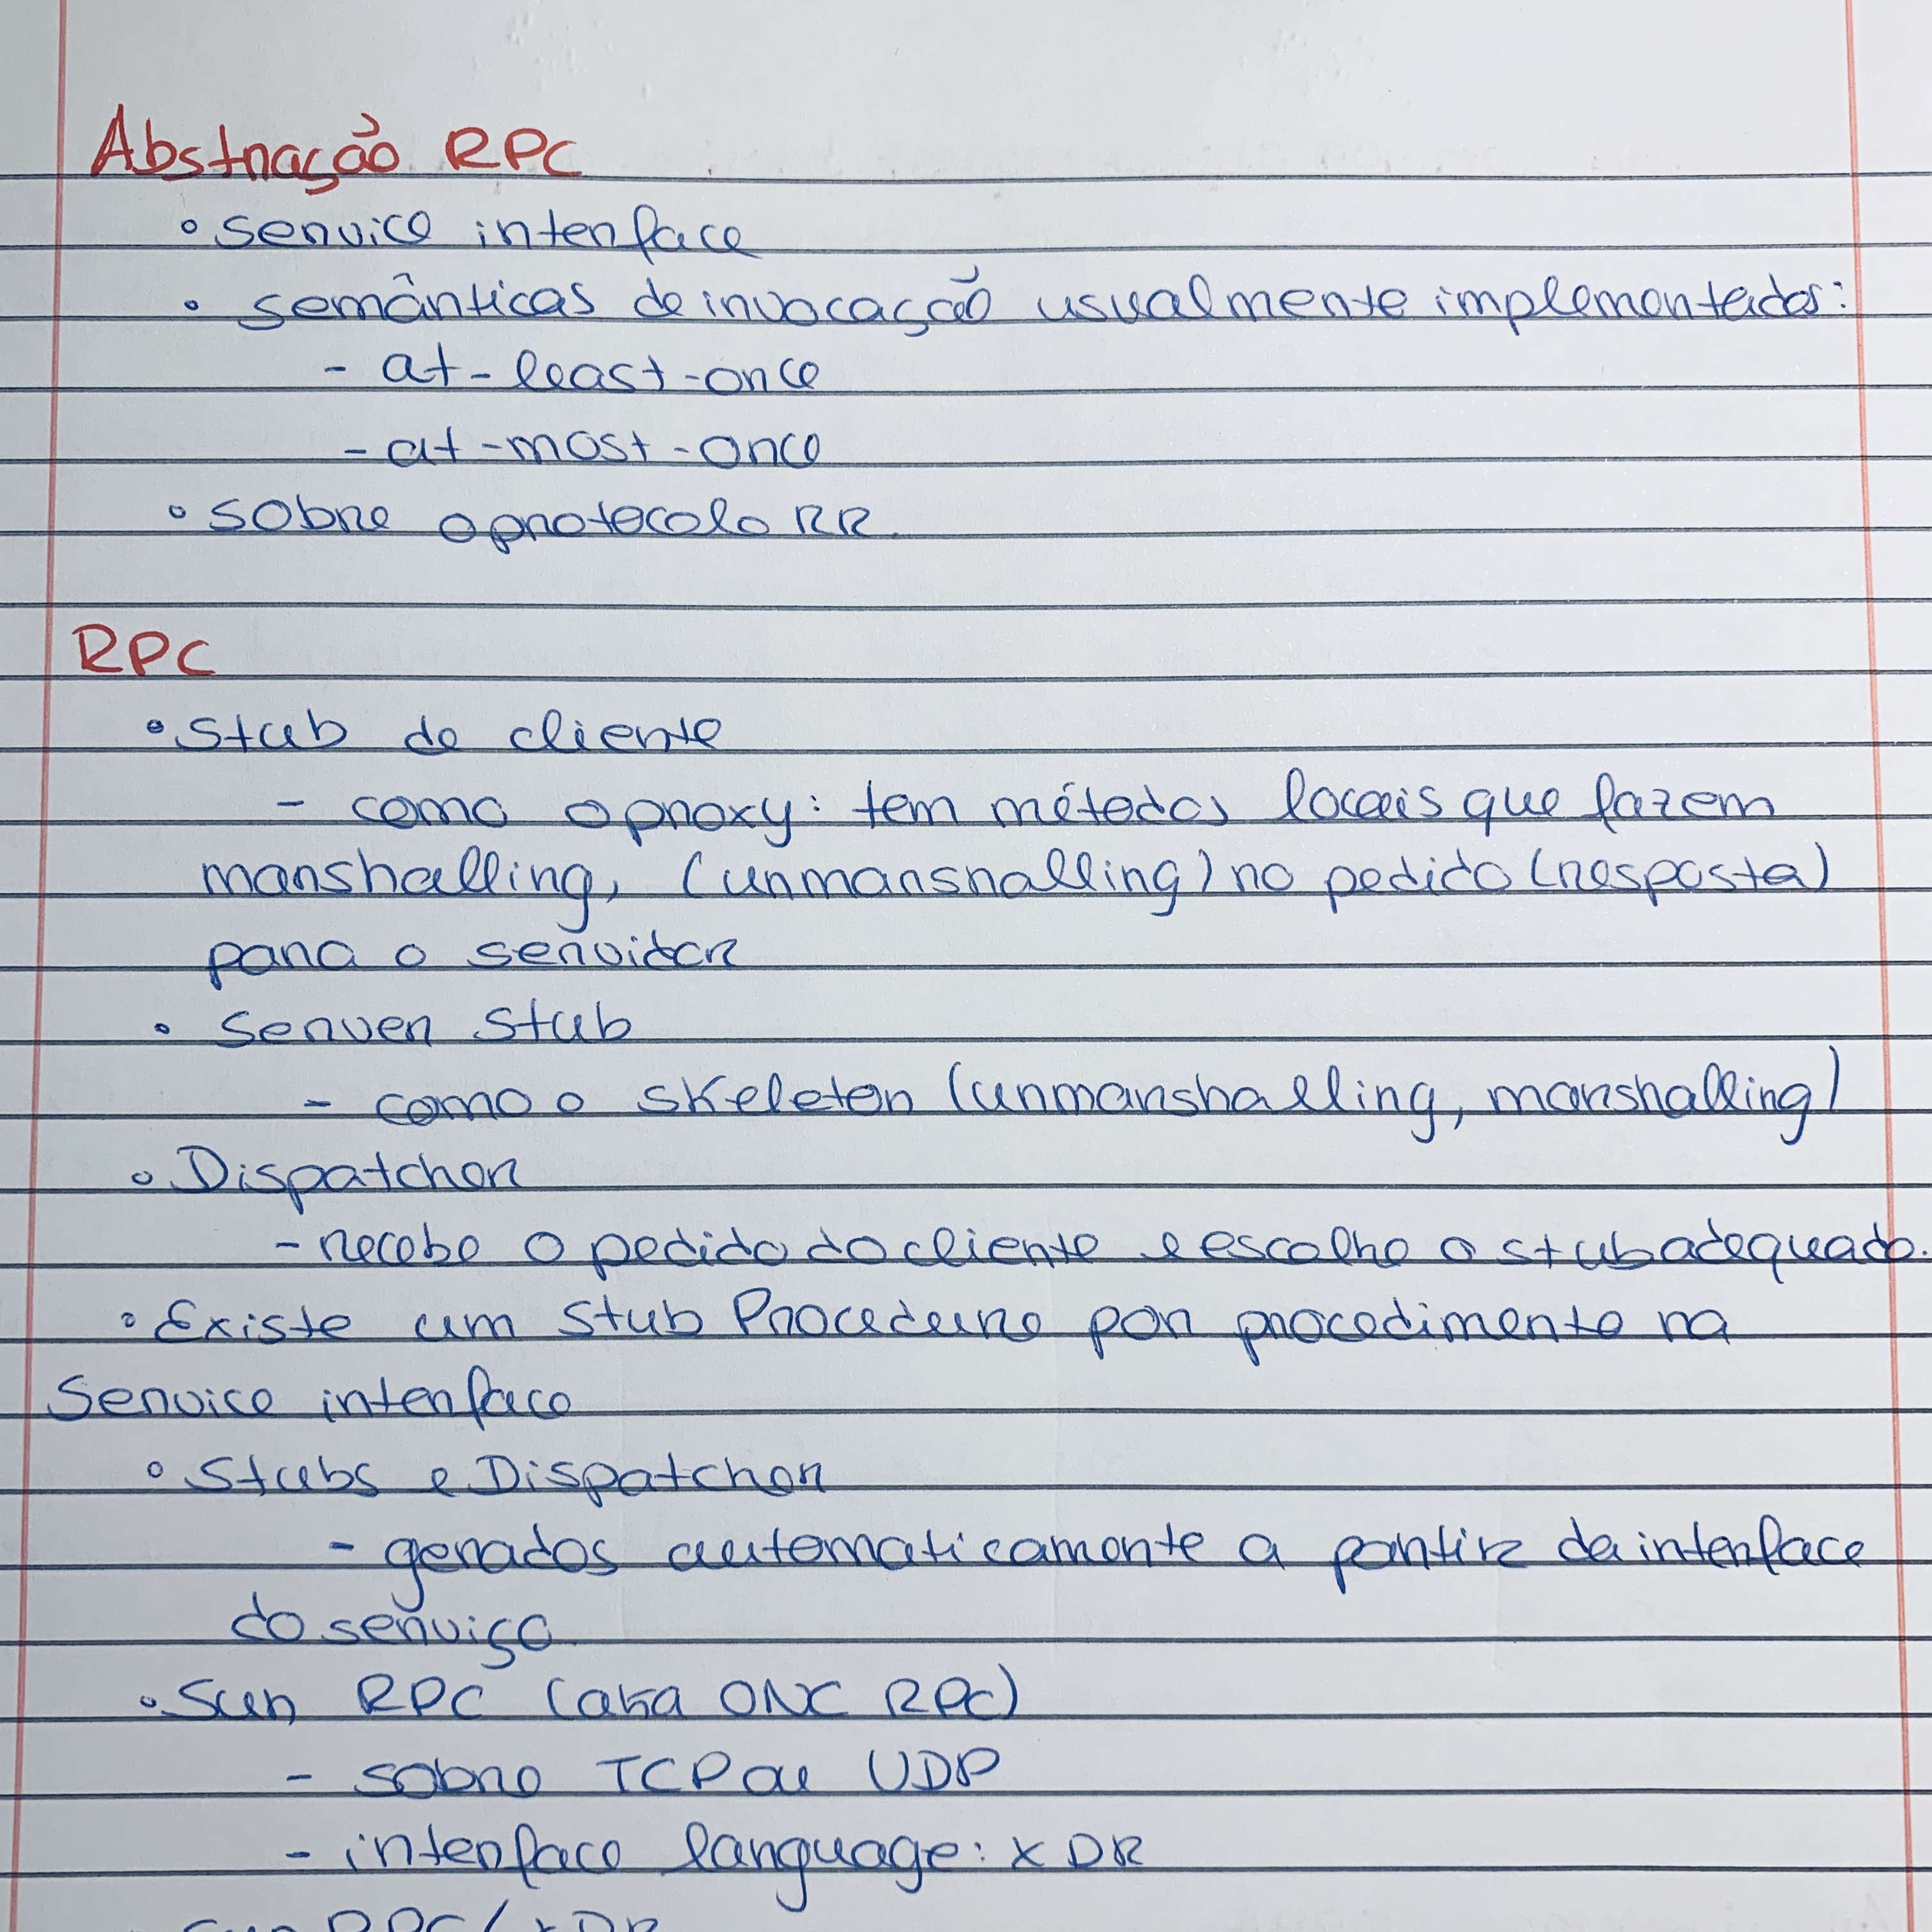 Abstração RPC
• service interface
• semânticas de invocação usualmente implementadas:
- at-least-once
- at-most-once
• sobre o protocolo RR
RPC
• Stub de cliente
- como o proxy: tem métodos locais que fazem
marshalling, (unmarshalling) no pedido (resposta)
para o servidor
• Server stub
- como o skeleton (unmarshalling, marshalling)
• Dispatcher
- recebe o pedido do cliente e escolhe o stub adequado.
• Existe um Stub Procedure por procedimento na
Service interface
• Stubs e Dispatcher
- gerados automaticamente a partir da interface
do serviço
• Sun RPC (aka ONC RPC)
- sobre TCP ou UDP
- interface language: XDR
• Sun RPC / XDR